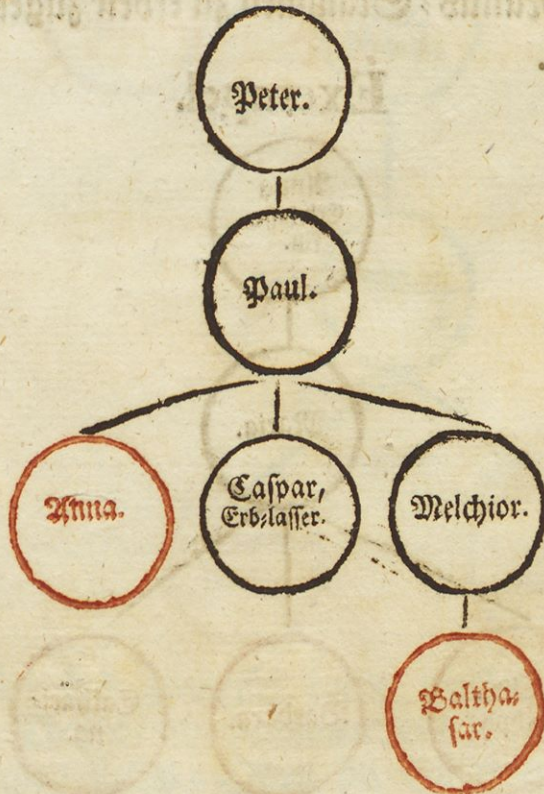 Peter.
Paul.
Anna.
Caſpar,
Erb⸗laſſer.
Melchior.
Baltha⸗
ſar.